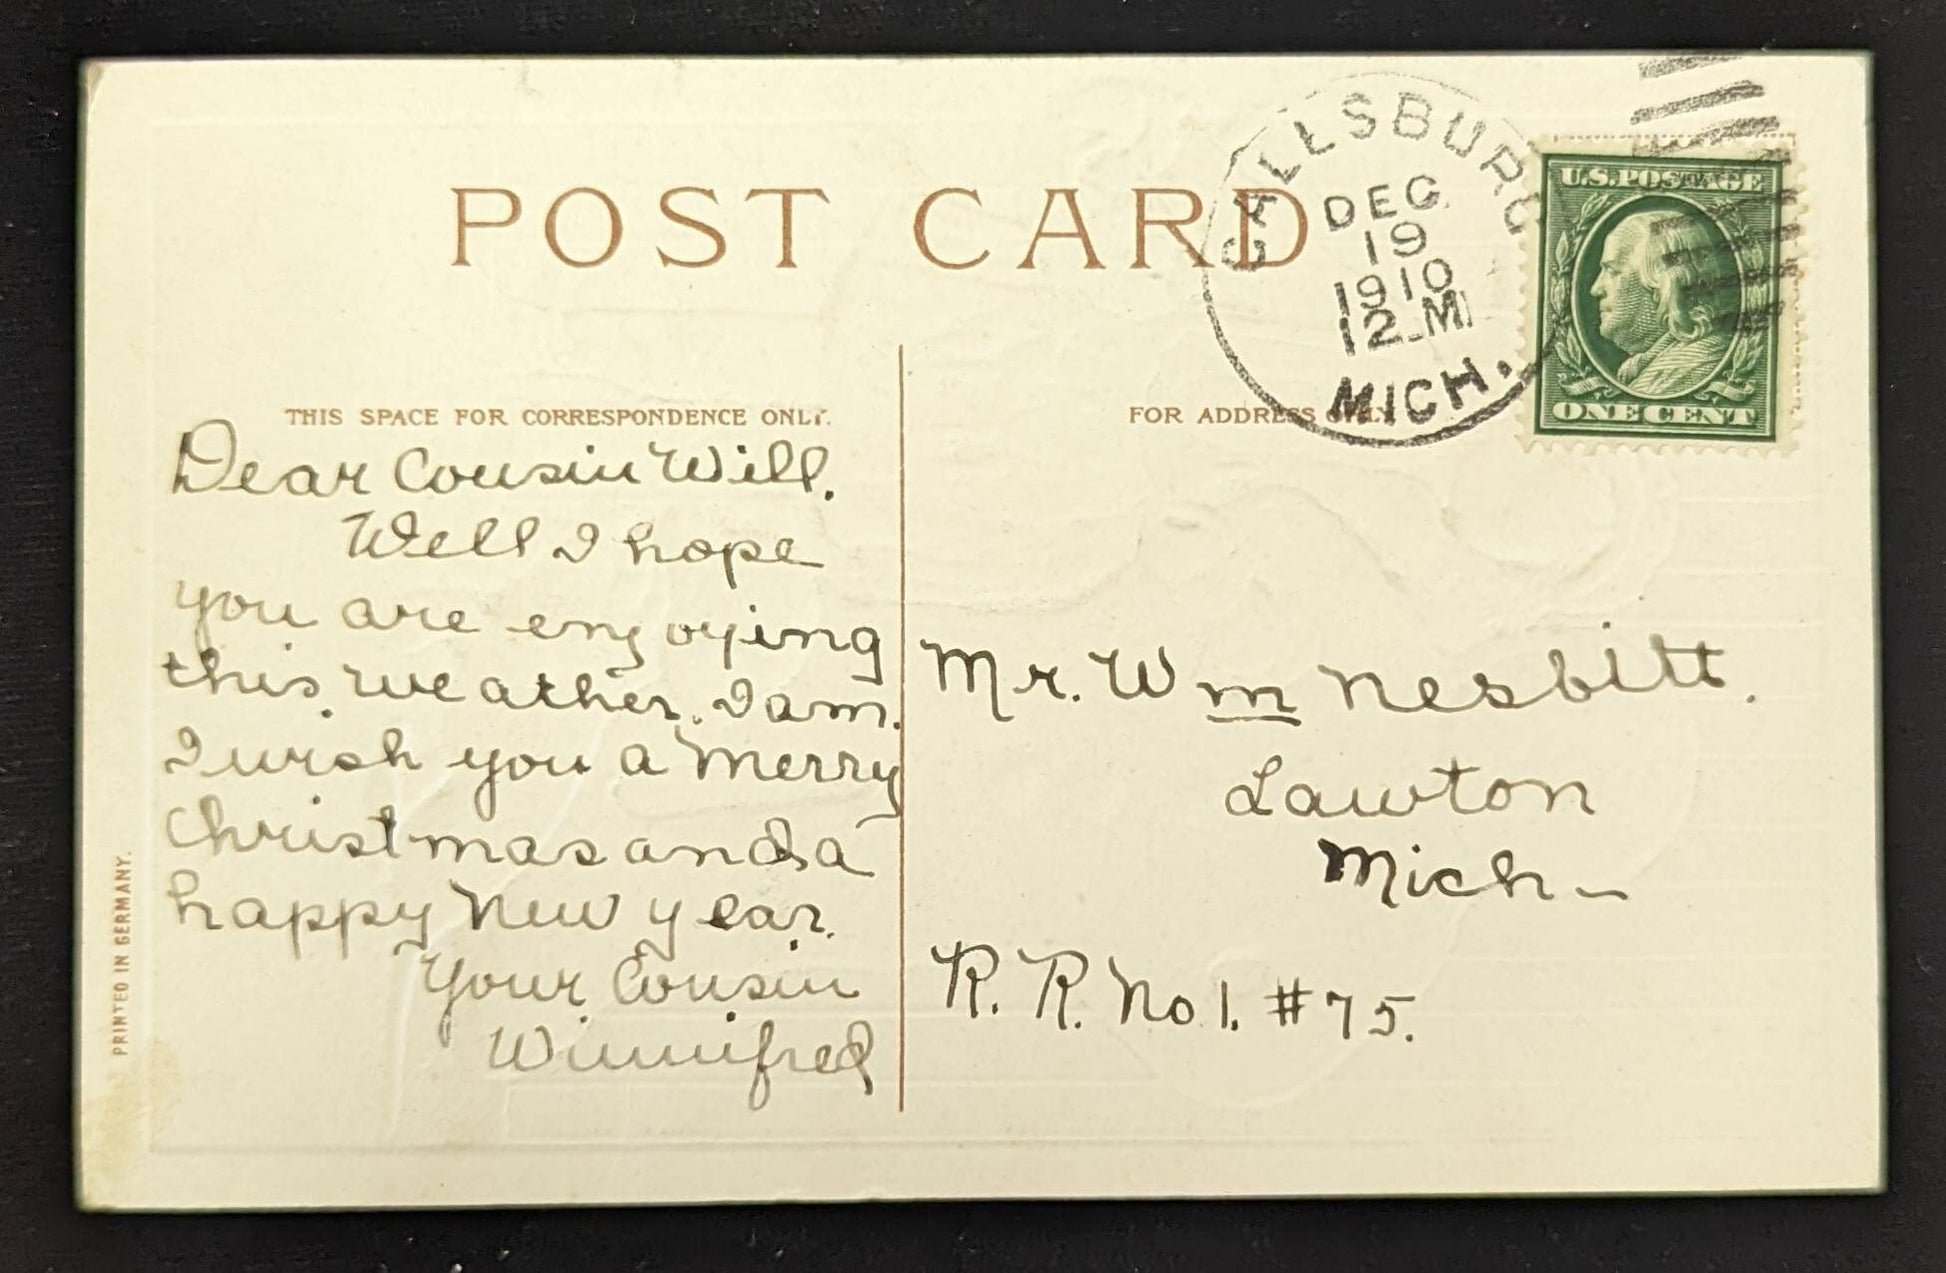 POST CARD
THIS SPACE FOR CORRESPONDENCE ONLY.
Dear Cousin Will.
Well I hope
you are enjoying
this weather. I am.
I wish you a Merry
Christmas and a
happy New year.
Your Cousin
Winnifred
PRINTED IN GERMANY.
FOR ADDRESS ONLY
Mr. Wm Nesbitt.
Lawton
Mich-
R. R. No 1. #75.
DEC
19
1910
12 M
MICH.
U.S. POSTAGE
ONE CENT